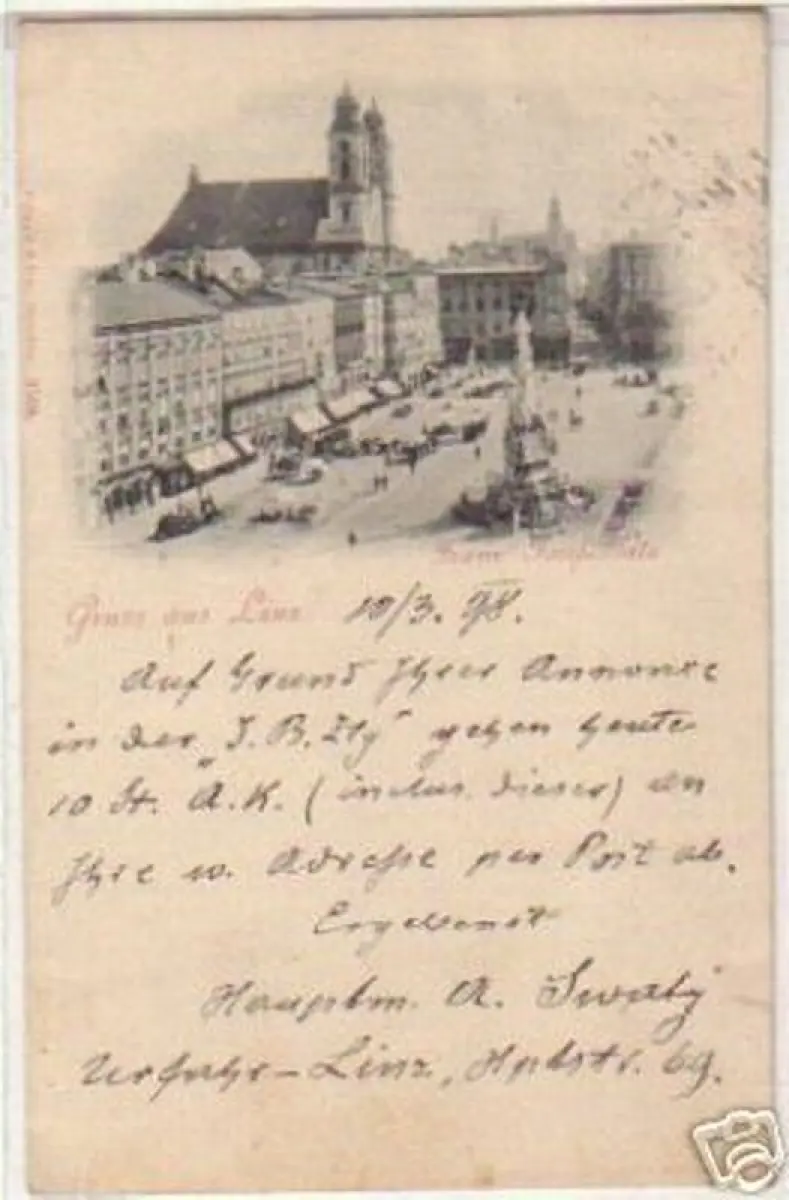 Franz Josef-Platz
Gruss aus Linz 10/3. 98.
Auf Grund Ihrer Annonce
in der „I. B. Ztg" gehen heute
10 St. A. K. (inclus. dieser) an
Ihre w. Adresse per Post ab.
Ergebenst
Hauptm. A. Swatý
Urfahr-Linz, Hptstr. 69.